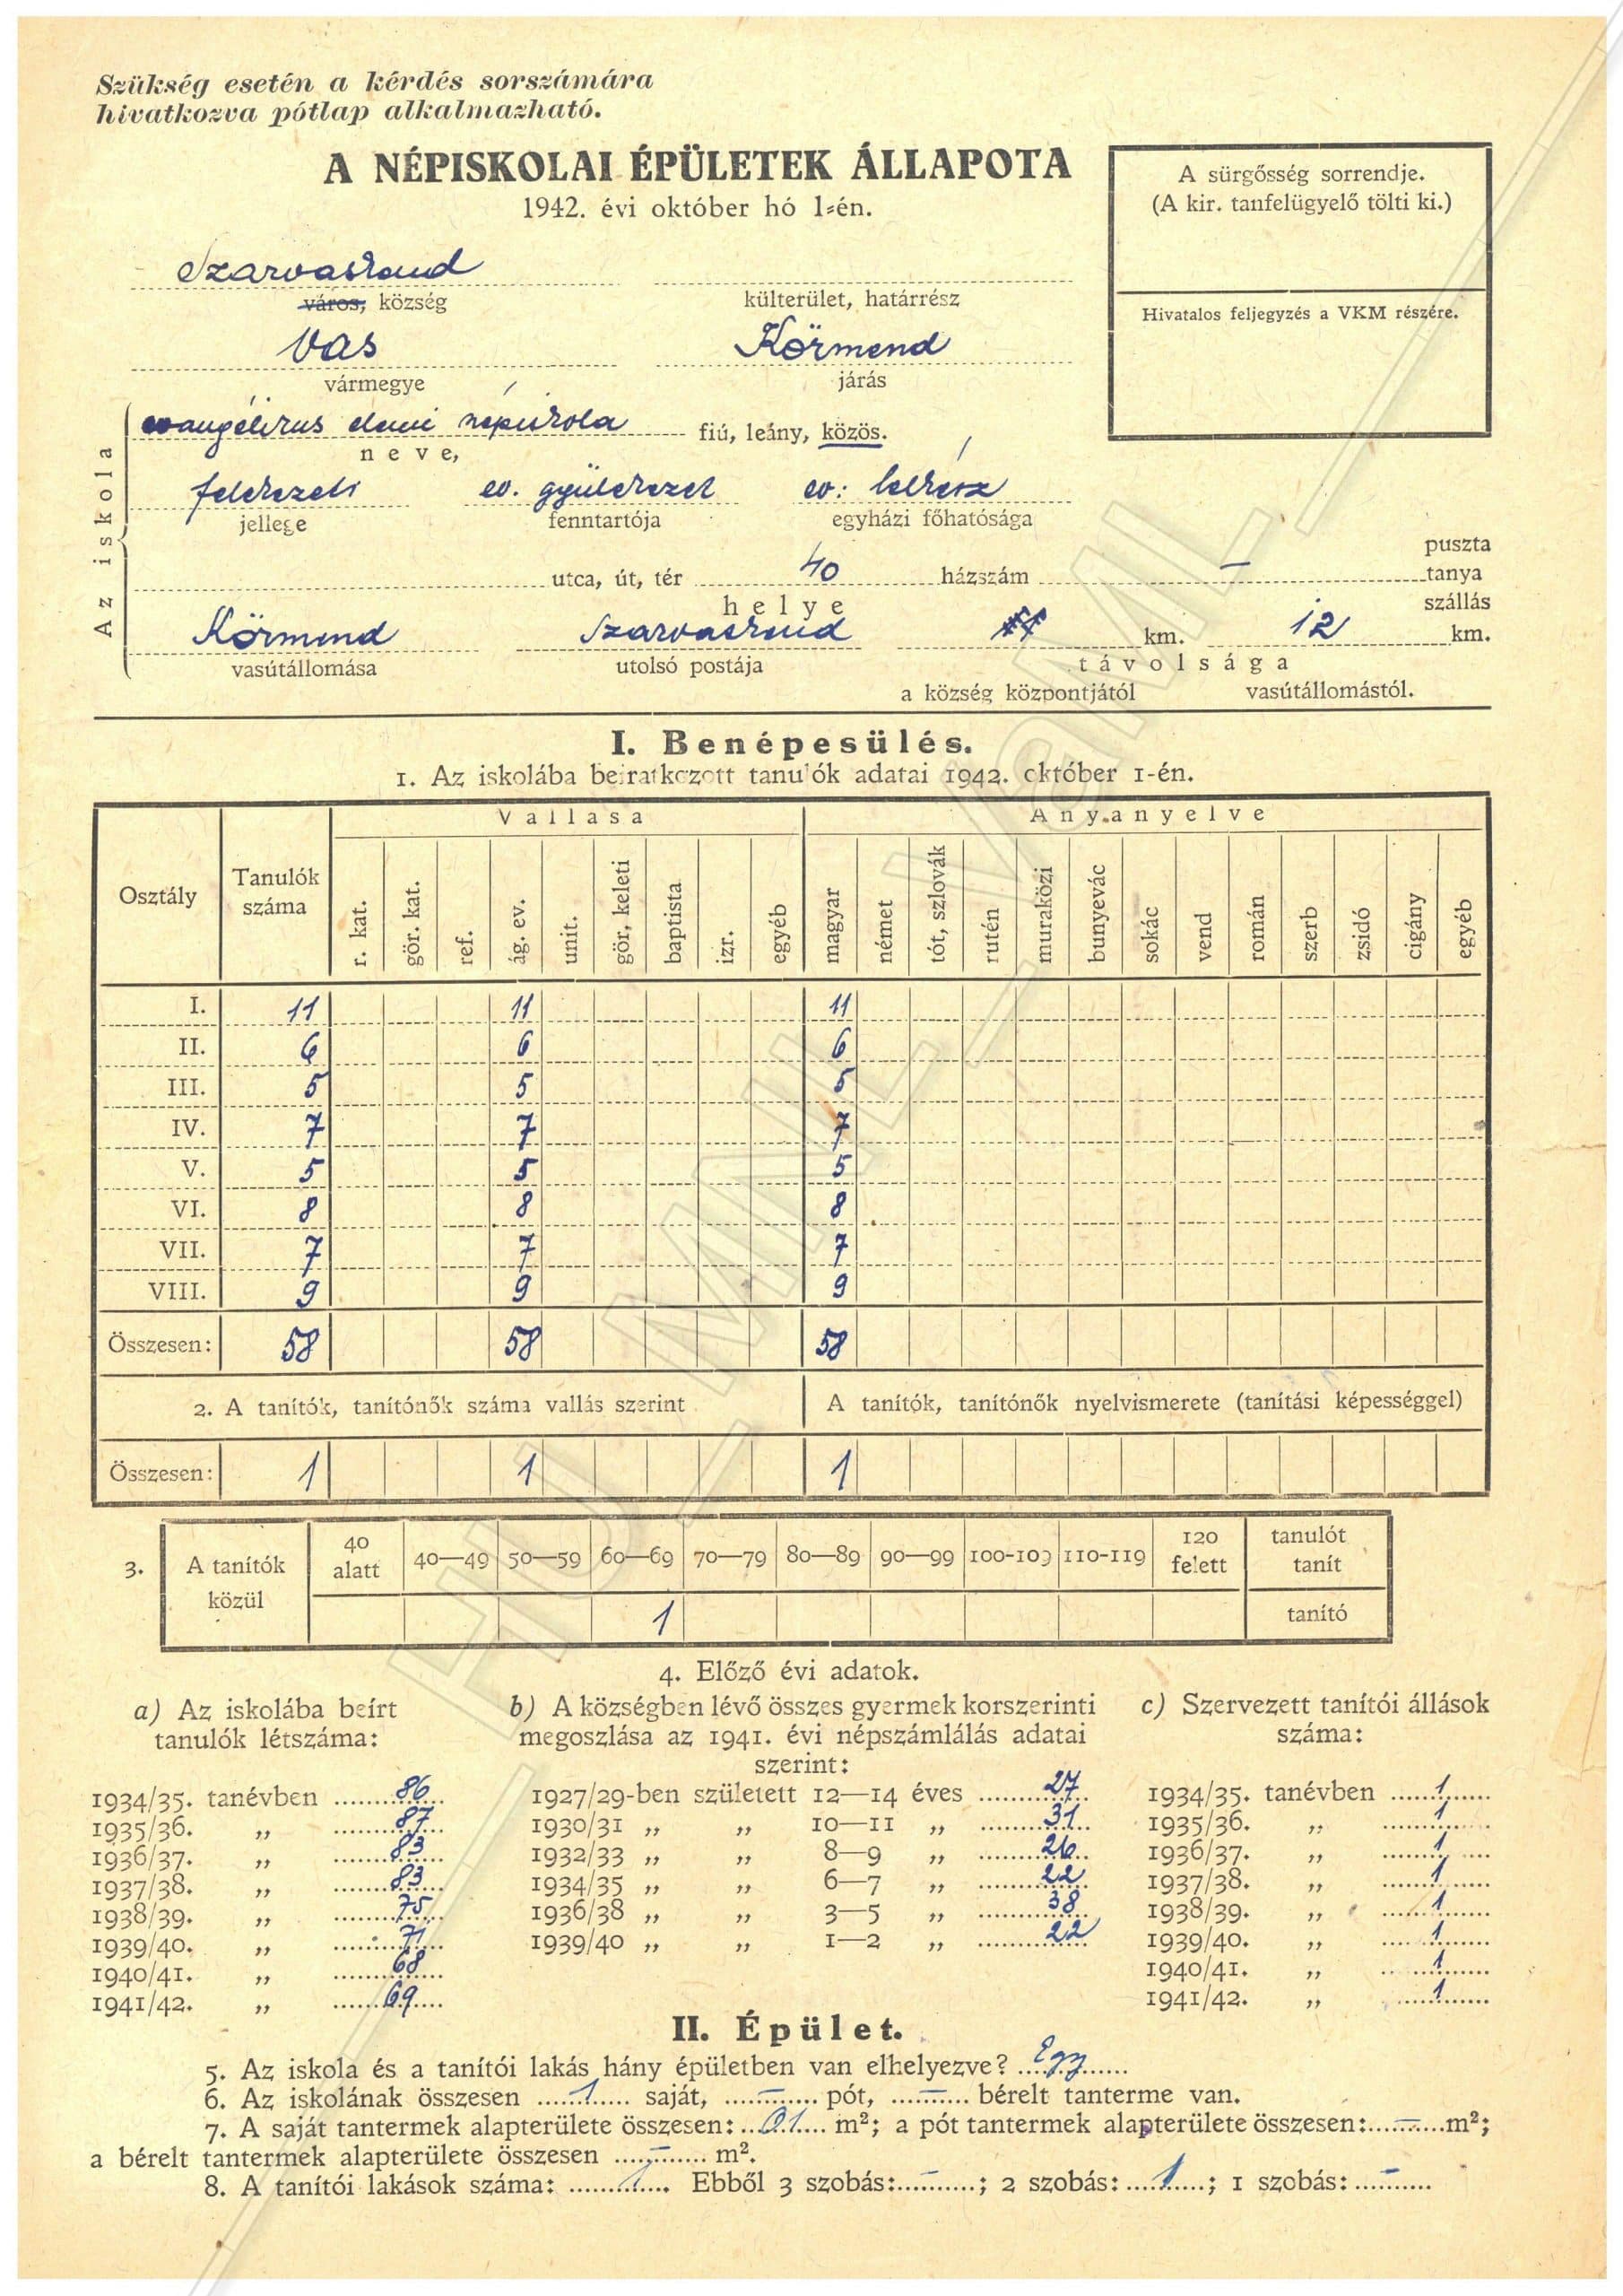 Szükség esetén a kérdés sorszámára
hivatkozva pótlap alkalmazható.
A NÉPISKOLAI ÉPÜLETEK ÁLLAPOTA
1942. évi október hó 1-én.
A sürgősség sorrendje.
(A kir. tanfelügyelő tölti ki.)
Hivatalos feljegyzés a VKM részére.
Szarvaskend
város, község külterület, határrész
Vas Körmend
vármegye járás
Az iskola
evangélikus elemi népiskola fiú, leány, közös.
neve,
felekezeti ev. gyülekezet ev. lelkész
jellege fenntartója egyházi főhatósága
utca, út, tér 40 házszám – puszta tanya szállás
helye
Körmend Szarvaskend km. 12 km.
vasútállomása utolsó postája távolsága
a község központjától vasútállomástól.
I. Benépesülés.
1. Az iskolába beiratkozott tanulók adatai 1942. október 1-én.
Osztály Tanulók száma Vallása Anyanyelve
r. kat. gör. kat. ref. ág. ev. unit. gör. keleti baptista izr. egyéb magyar német tót, szlovák rutén muraközi bunyevác sokác vend román szerb zsidó cigány egyéb
I. 11 11 11
II. 6 6 6
III. 5 5 5
IV. 7 7 7
V. 5 5 5
VI. 8 8 8
VII. 7 7 7
VIII. 9 9 9
Összesen: 58 58 58
2. A tanítók, tanítónők száma vallás szerint A tanítók, tanítónők nyelvismerete (tanítási képességgel)
Összesen: 1 1 1
3. A tanítók közül 40 alatt 40—49 50—59 60—69 70—79 80—89 90—99 100-109 110-119 120 felett tanulót tanít
1 tanító
4. Előző évi adatok.
a) Az iskolába beírt
tanulók létszáma:
1934/35. tanévben 86
1935/36. „ 87
1936/37. „ 83
1937/38. „ 83
1938/39. „ 75
1939/40. „ 71
1940/41. „ 68
1941/42. „ 69
b) A községben lévő összes gyermek korszerinti
megoszlása az 1941. évi népszámlálás adatai
szerint:
1927/29-ben született 12—14 éves 27
1930/31 „ „ 10—11 „ 31
1932/33 „ „ 8—9 „ 26
1934/35 „ „ 6—7 „ 22
1936/38 „ „ 3—5 „ 38
1939/40 „ „ 1—2 „ 22
c) Szervezett tanítói állások
száma:
1934/35. tanévben 1
1935/36. „ 1
1936/37. „ 1
1937/38. „ 1
1938/39. „ 1
1939/40. „ 1
1940/41. „ 1
1941/42. „ 1
II. Épület.
5. Az iskola és a tanítói lakás hány épületben van elhelyezve? Egy
6. Az iskolának összesen 1 saját, – pót, – bérelt tanterme van.
7. A saját tantermek alapterülete összesen: m²; a pót tantermek alapterülete összesen: – m²;
a bérelt tantermek alapterülete összesen – m².
8. A tanítói lakások száma: 1 Ebből 3 szobás: – ; 2 szobás: 1 ; 1 szobás: –
HU_MNL_VaML